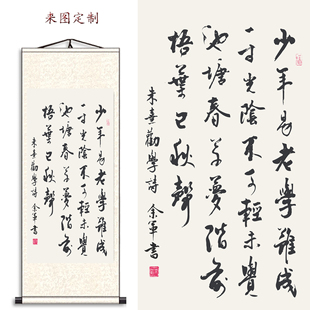 来图定制
少年易老學難成
一寸光陰不可輕未覺
池塘春草夢階前
梧葉已秋聲
朱熹勸學詩 余軍書
少年易老學難成
一寸光陰不可輕未覺
池塘春草夢階前
梧葉已秋聲
朱熹勸學詩 余軍書